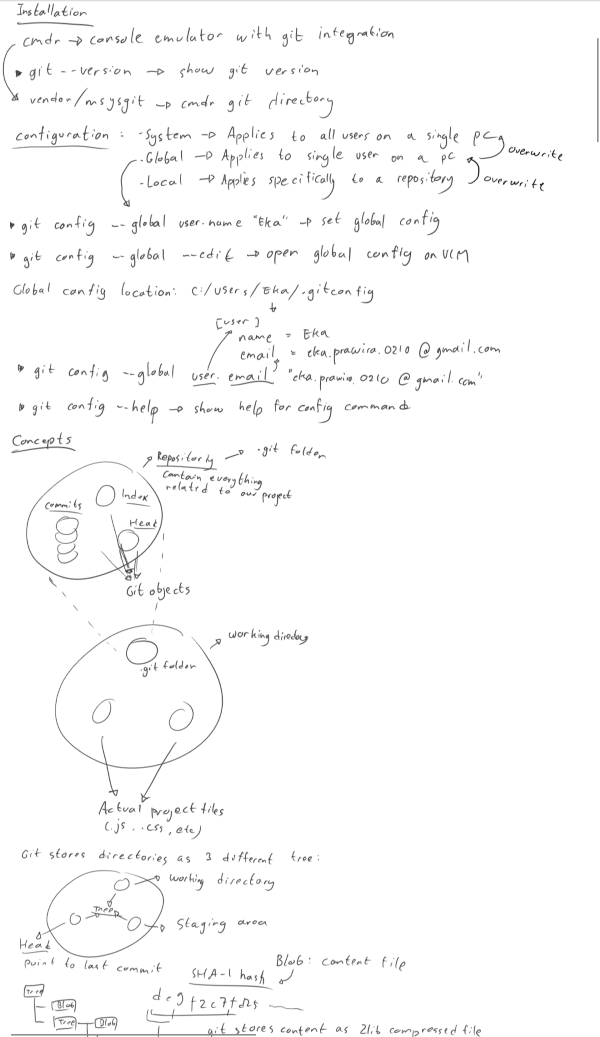 Installation
cmdr → console emulator with git integration
git --version → show git version
vendor/msysgit → cmdr git directory
configuration : -System → Applies to all users on a single pc
overwrite
-Global → Applies to single user on a pc
-Local → Applies specifically to a repository
overwrite
git config --global user.name "Eka" → set global config
git config --global --edit → open global config on VIM
Global config location: C:/Users/Eka/.gitconfig
[user]
name = Eka
email = eka.prawira.0210@gmail.com
git config --global user.email "eka.prawira.0210@gmail.com"
git config --help → show help for config command
Concepts
Repository → .git folder
Contain everything
related to our project
Index
commits
Heat
Git objects
working directory
.git folder
Actual project files
(.js . .css, etc)
Git stores directories as 3 different tree:
working directory
Tree
Staging area
Heat
point to last commit
Blob: content file
SHA-1 hash
Tree
Blob
Tree
Blob
git stores content as zlib compressed file